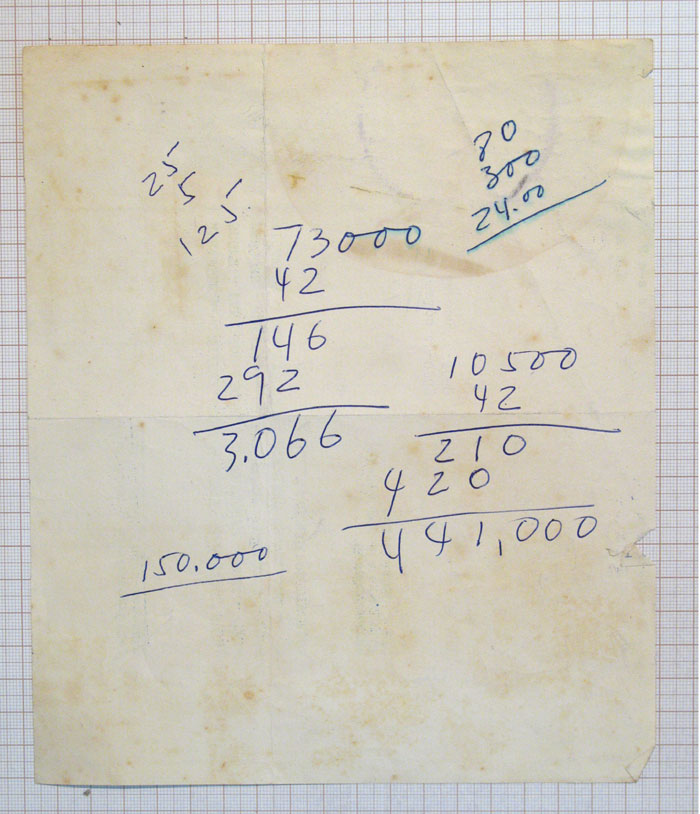 25
5
125
80
300
24.00
73000
42
146
292
3.066
10500
42
210
420
441,000
150.000